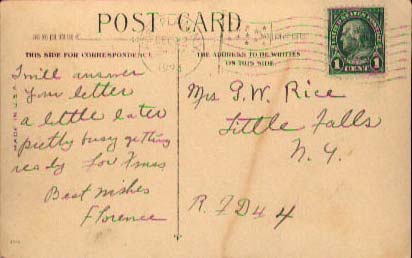 POST CARD
THIS SIDE FOR CORRESPONDENCE
THE ADDRESS TO BE WRITTEN
ON THIS SIDE.
UNITED STATES POSTAGE
1 CENT 1
MADE IN U.S.A.
I will answer
your letter
a little later
pretty busy getting
ready for Xmas
Best wishes
Florence
Mrs G.W. Rice
Little Falls
N.Y.
R.F.D 4 4